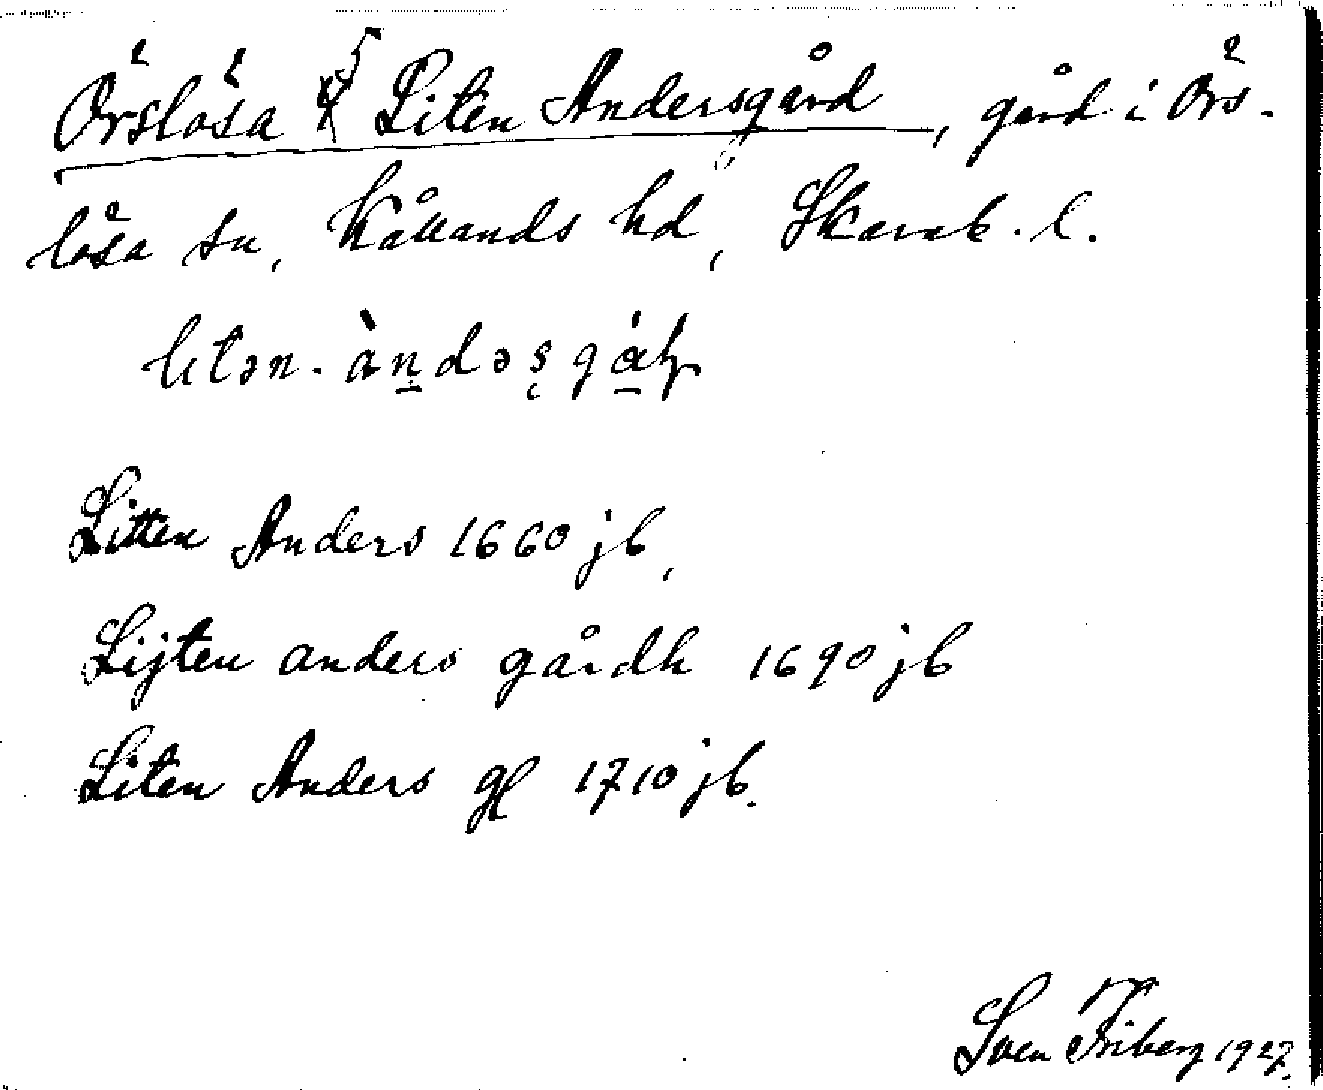 Örslösa 5 Liten Andersgård, gård i Örs-
lösa sn, Kållands hd, Skarab. l.
litən-àndəsgáɖ
Litten Anders 1660 jb,
Lijten anders gårdh 1690 jb
Liten Anders gl 1710 jb.
Sven Friberg 1927.